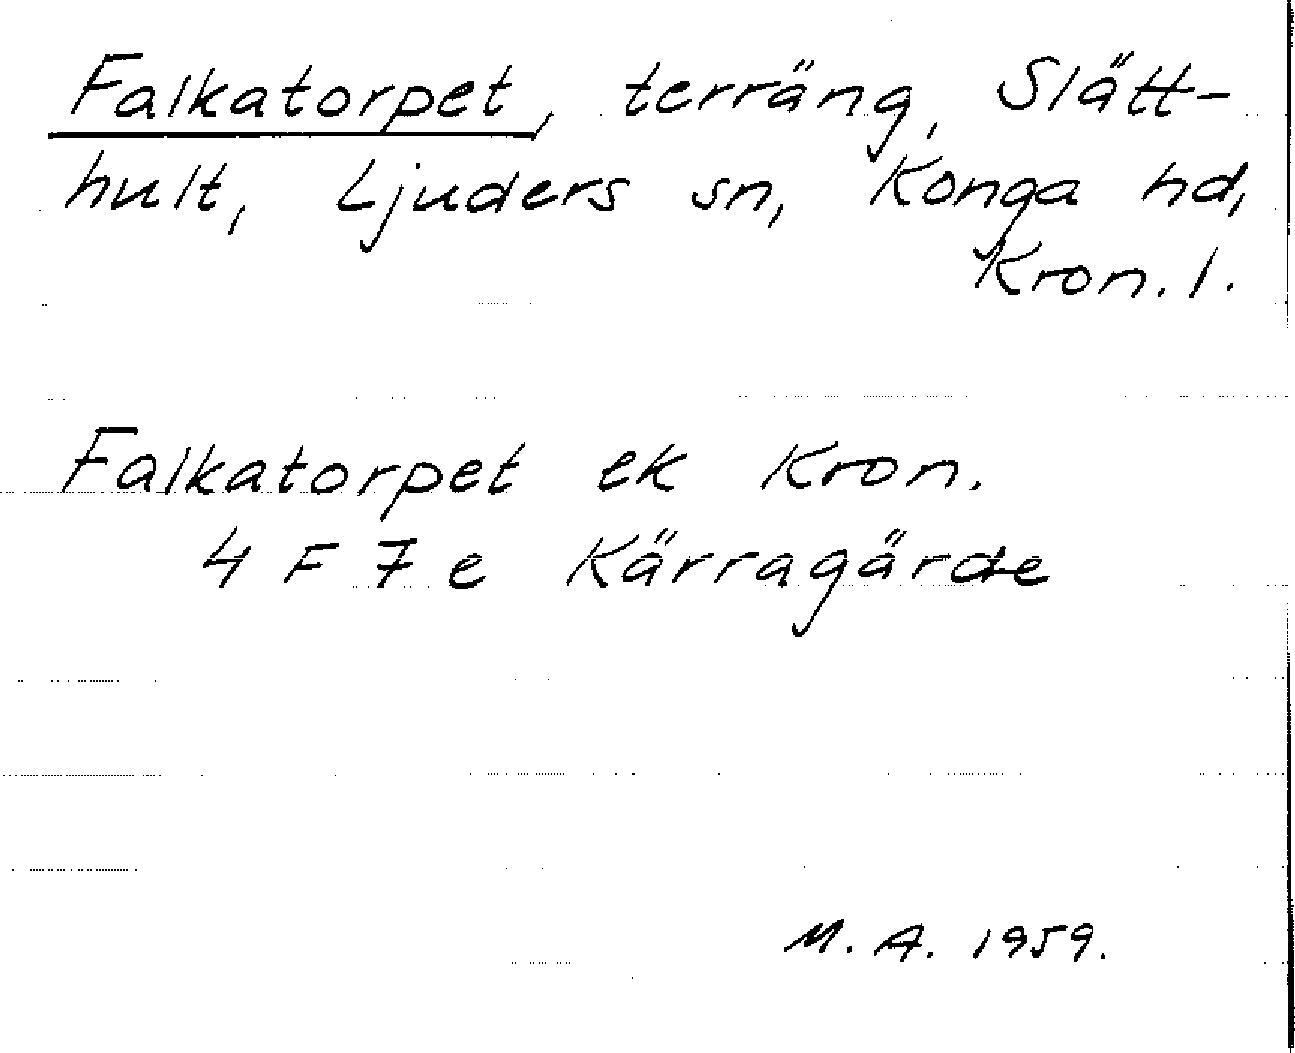 Falkatorpet, terräng, Slätt-
hult, Ljuders sn, Konga hd,
Kron. l.
Falkatorpet ek Kron.
4 F 7 e Kärragärde
M. A. 1959.